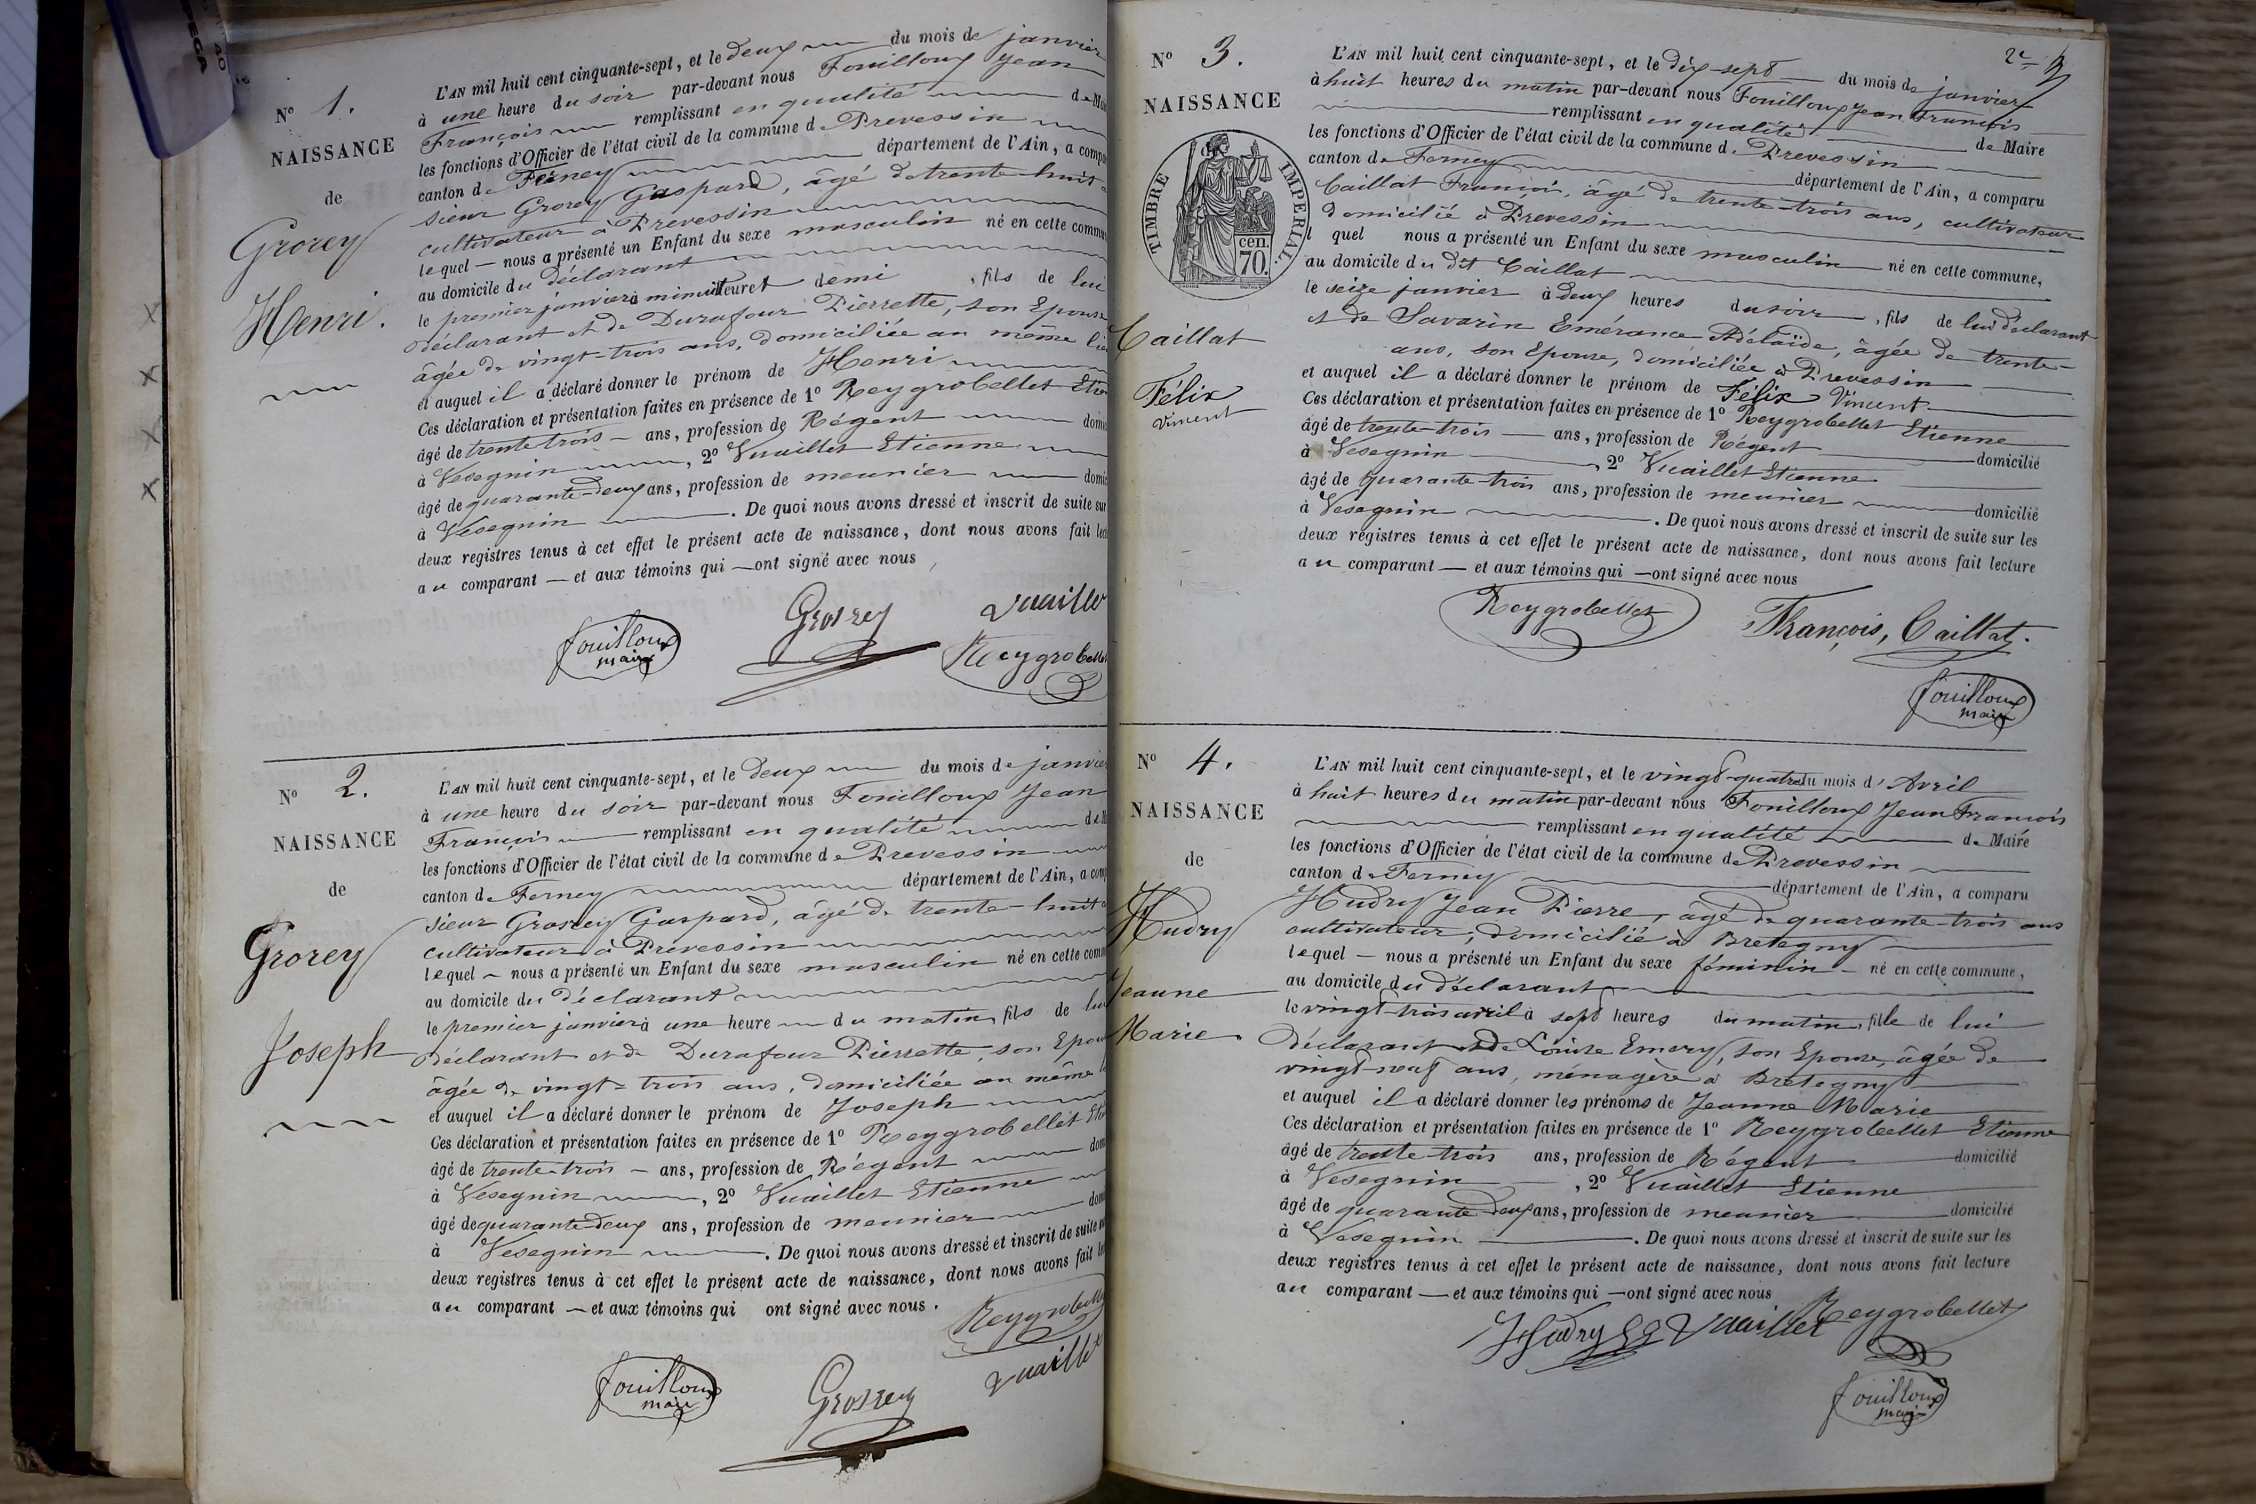 N° 1.
NAISSANCE
de
Grorey
Henri.
L'AN mil huit cent cinquante-sept, et le deux du mois de janvier
à une heure du soir par-devant nous Fouilloux Jean
François remplissant en qualité de Mai
les fonctions d'Officier de l'état civil de la commune de Prevessin
canton de Ferney département de l'Ain, a compa
sieur Grorey Gaspard, âgé de trente-huit a
cultivateur à Prevessin
lequel — nous a présenté un Enfant du sexe masculin né en cette commun
au domicile du déclarant
le premier janvier à minuit heure et demi, fils de lui
déclarant et de Durafour Pierrette, son Epouse
âgée de vingt-trois ans, domiciliée au même lieu
et auquel il a déclaré donner le prénom de Henri
Ces déclaration et présentation faites en présence de 1° Reygrobellet Etie
âgé de trente trois — ans, profession de Régent domic
à Vesegnin, 2° Vuaillet Etienne
âgé de quarante-deux ans, profession de meunier domic
à Vesegnin. De quoi nous avons dressé et inscrit de suite sur
deux registres tenus à cet effet le présent acte de naissance, dont nous avons fait lect
au comparant — et aux témoins qui — ont signé avec nous
Fouilloux
maire
Grosrey
Vuaillet
Reygrobellet
N° 2.
NAISSANCE
de
Grorey
Joseph
L'AN mil huit cent cinquante-sept, et le deux du mois de janvier
à une heure du soir par-devant nous Fouilloux Jean
François remplissant en qualité de M
les fonctions d'Officier de l'état civil de la commune de Prevessin
canton de Ferney département de l'Ain, a comp
sieur Grosrey Gaspard, âgé de trente-huit a
cultivateur à Prévessin
lequel — nous a présenté un Enfant du sexe masculin né en cette comm
au domicile du déclarant
le premier janvier à une heure du matin, fils de lui
déclarant et de Durafour Pierrette, son Epou
âgée de vingt-trois ans, domiciliée au même l
et auquel il a déclaré donner le prénom de Joseph
Ces déclaration et présentation faites en présence de 1° Reygrobellet Etie
âgé de trente-trois — ans, profession de Régent dom
à Vesegnin, 2° Vuaillet Etienne
âgé de quarante deux ans, profession de meunier dom
à Vesegnin. De quoi nous avons dressé et inscrit de suite
deux registres tenus à cet effet le présent acte de naissance, dont nous avons fait le
au comparant — et aux témoins qui ont signé avec nous.
Reygrobellet
Vuaillet
Fouilloux
maire
Grosrey
N° 3.
NAISSANCE
TIMBRE IMPERIAL.
cen.
70.
Caillat
Félix
Vincent
L'AN mil huit cent cinquante-sept, et le dix-sept du mois de janvier
à huit heures du matin par-devant nous Fouilloux Jean François
remplissant en qualité de Maire
les fonctions d'Officier de l'état civil de la commune de Prevessin
canton de Ferney département de l'Ain, a comparu
Caillat François, âgé de trente-trois ans, cultivateur
domicilié à Prevessin
l quel nous a présenté un Enfant du sexe masculin né en cette commune,
au domicile du dit Caillat
le seize janvier à deux heures du soir, fils de lui déclarant
et de Savarin Emérance Adélaïde, âgée de trente-
ans, son Epouse, domiciliée à Prevessin
et auquel il a déclaré donner le prénom de Félix Vincent
Ces déclaration et présentation faites en présence de 1° Reygrobellet Etienne
âgé de trente-trois — ans, profession de Régent domicilié
à Vesegnin, 2° Vuaillet Etienne
âgé de quarante-trois ans, profession de meunier domicilié
à Vesegnin. De quoi nous avons dressé et inscrit de suite sur les
deux registres tenus à cet effet le présent acte de naissance, dont nous avons fait lecture
au comparant — et aux témoins qui — ont signé avec nous
Reygrobellet
François, Caillat.
Fouilloux
maire
N° 4.
NAISSANCE
de
Hudry
Jeanne
Marie
L'AN mil huit cent cinquante-sept, et le vingt-quatre du mois d'Avril
à huit heures du matin par-devant nous Fouilloux Jean François
remplissant en qualité de Maire
les fonctions d'Officier de l'état civil de la commune de Prevessin
canton de Ferney département de l'Ain, a comparu
Hudry Jean Pierre, âgé de quarante-trois ans
cultivateur, domicilié à Bretegny
lequel — nous a présenté un Enfant du sexe féminin — né en cette commune,
au domicile du déclarant
le vingt-trois avril à sept heures du matin, fille de lui
déclarant et de Louise Emery, son Epouse, âgée de
vingt-neuf ans, ménagère à Bretegny
et auquel il a déclaré donner les prénoms de Jeanne Marie
Ces déclaration et présentation faites en présence de 1° Reygrobellet Etienne
âgé de trente-trois ans, profession de Régent domicilié
à Vesegnin, 2° Vuaillet Etienne
âgé de quarante-deux ans, profession de meunier domicilié
à Vesegnin. De quoi nous avons dressé et inscrit de suite sur les
deux registres tenus à cet effet le présent acte de naissance, dont nous avons fait lecture
au comparant — et aux témoins qui — ont signé avec nous
Hudry
Vuaillet
Reygrobellet
Fouilloux
maire